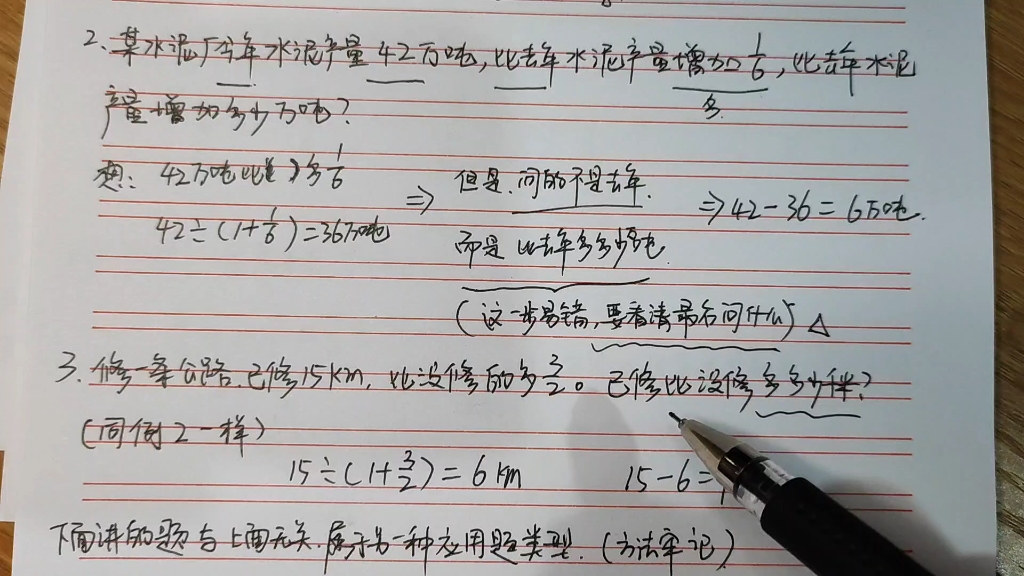 2. 某水泥厂今年水泥产量42万吨,比去年水泥产量增加1/6,比去年水泥
多
产量增加多少万吨?
想: 42万吨比( )多1/6
42÷(1+1/6)=36万吨
⇒ 但是,问的不是去年,
而是比去年多多少吨
⇒42-36=6万吨.
(这一步易错,要看清最后问什么) △
3. 修一条公路,已修15km,比没修的多3/2。已修比没修多多少千米?
(同例2一样)
15÷(1+3/2)=6km 15-6=
下面讲的题与上面无关,属于另一种应用题类型.(方法牢记)